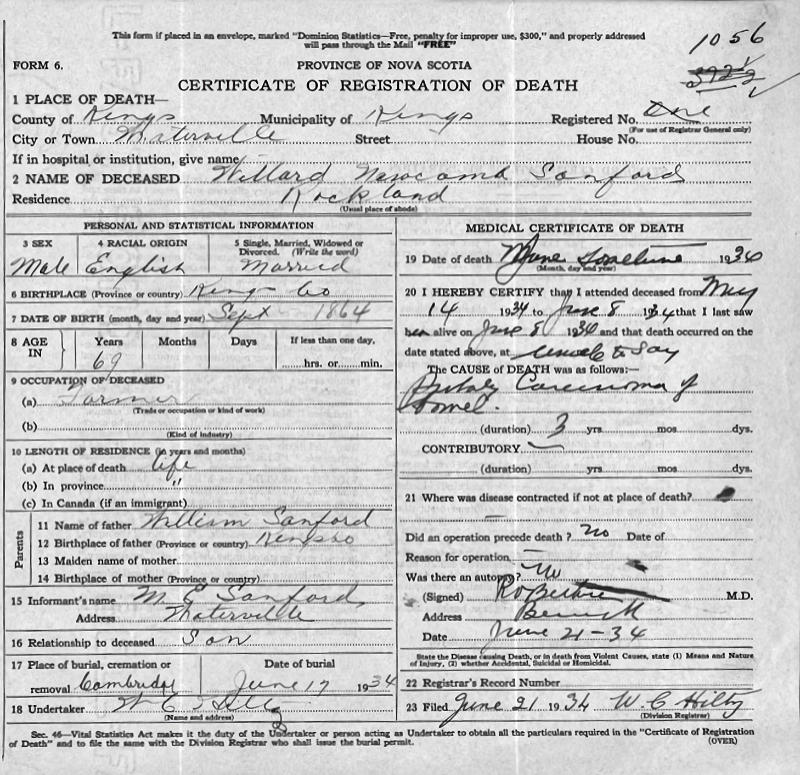 This form if placed in an envelope, marked "Dominion Statistics—Free, penalty for improper use, $300," and properly addressed
will pass through the Mail "FREE"
1056
FORM 6.
PROVINCE OF NOVA SCOTIA
CERTIFICATE OF REGISTRATION OF DEATH
1 PLACE OF DEATH—
County of Kings Municipality of Kings Registered No. One
(For use of Registrar General only)
City or Town Waterville Street House No.
If in hospital or institution, give name
2 NAME OF DECEASED Willard Newcomb Sanford
Residence Rockland
(Usual place of abode)
PERSONAL AND STATISTICAL INFORMATION
3 SEX 4 RACIAL ORIGIN 5 Single, Married, Widowed or
Divorced. (Write the word)
Male English Married
6 BIRTHPLACE (Province or country) Kings Co
7 DATE OF BIRTH (month, day and year) Sept 1864
8 AGE IN Years Months Days If less than one day,
69 hrs. or min.
9 OCCUPATION OF DECEASED
(a) Farmer
(Trade or occupation or kind of work)
(b)
(Kind of industry)
10 LENGTH OF RESIDENCE (in years and months)
(a) At place of death life
(b) In province "
(c) In Canada (if an immigrant)
Parents
11 Name of father William Sanford
12 Birthplace of father (Province or country) Kings Co
13 Maiden name of mother
14 Birthplace of mother (Province or country)
15 Informant's name M. E. Sanford
Address Waterville
16 Relationship to deceased Son
17 Place of burial, cremation or Date of burial
removal Cambridge June 17 1934
18 Undertaker W C
(Name and address)
MEDICAL CERTIFICATE OF DEATH
19 Date of death June 1934
(Month, day and year)
20 I HEREBY CERTIFY that I attended deceased from May
14 1934 to June 8 1934 that I last saw
alive on June 8 1934 and that death occurred on the
date stated above, at unable to say
The CAUSE OF DEATH was as follows:—
Carcinoma of
bowel.
(duration) 3 yrs mos dys.
CONTRIBUTORY —
(duration) yrs mos dys.
21 Where was disease contracted if not at place of death?
—
Did an operation precede death? no Date of
Reason for operation —
Was there an autopsy? No
(Signed) M.D.
Address Berwick
Date June 21-34
State the Disease causing Death, or in death from Violent Causes, state (1) Means and Nature
of Injury, (2) whether Accidental, Suicidal or Homicidal.
22 Registrar's Record Number
23 Filed June 21 1934 W. C Hilty
(Division Registrar)
Sec. 46—Vital Statistics Act makes it the duty of the Undertaker or person acting as Undertaker to obtain all the particulars required in the "Certificate of Registration
of Death" and to file the same with the Division Registrar who shall issue the burial permit. (OVER)